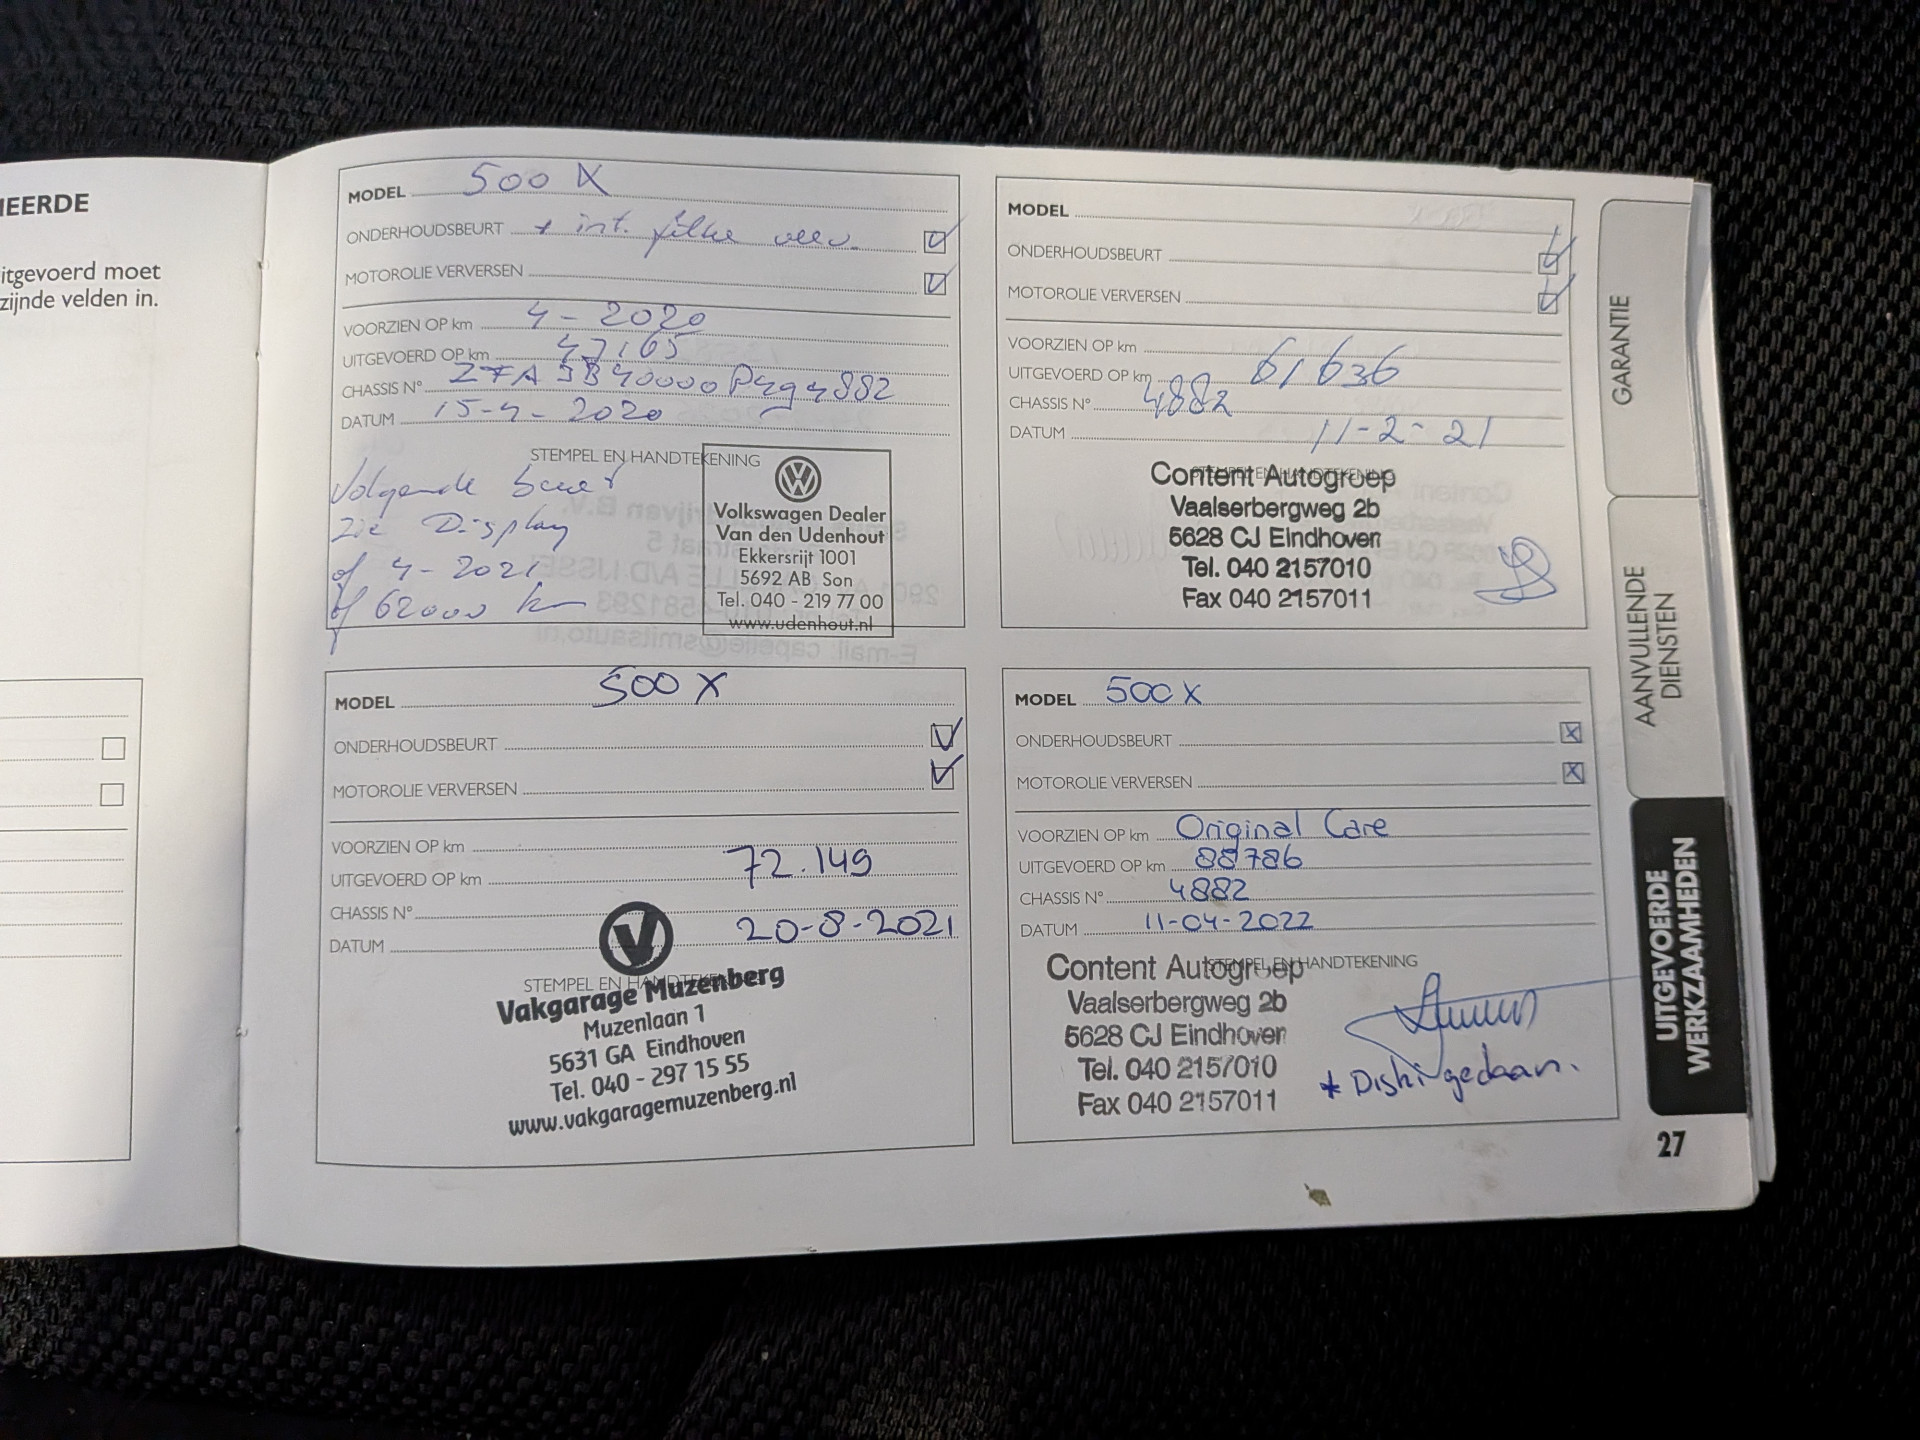 IEERDE
itgevoerd moet
zijnde velden in.
MODEL 500 X
ONDERHOUDSBEURT + int. filter verv.
MOTOROLIE VERVERSEN
VOORZIEN OP km 4-2020
UITGEVOERD OP km 47165
CHASSIS N°
DATUM 15-4-2020
STEMPEL EN HANDTEKENING
Volgende beurt
zie Display
of 4-2021
of 62000 km
Volkswagen Dealer
Van den Udenhout
Ekkersrijt 1001
5692 AB Son
Tel. 040 - 219 77 00
www.udenhout.nl
MODEL
ONDERHOUDSBEURT
MOTOROLIE VERVERSEN
VOORZIEN OP km
UITGEVOERD OP km 61636
CHASSIS N° 4882
DATUM 11-2-21
STEMPEL EN HANDTEKENING
Content Autogroep
Vaalserbergweg 2b
5628 CJ Eindhoven
Tel. 040 2157010
Fax 040 2157011
MODEL 500 X
ONDERHOUDSBEURT
MOTOROLIE VERVERSEN
VOORZIEN OP km
UITGEVOERD OP km 72.149
CHASSIS N°
DATUM 20-8-2021
STEMPEL EN HANDTEKENING
Vakgarage Muzenberg
Muzenlaan 1
5631 GA Eindhoven
Tel. 040 - 297 15 55
www.vakgaragemuzenberg.nl
MODEL 500 X
ONDERHOUDSBEURT
MOTOROLIE VERVERSEN
VOORZIEN OP km Original Care
UITGEVOERD OP km 88786
CHASSIS N° 4882
DATUM 11-04-2022
STEMPEL EN HANDTEKENING
Content Autogroep
Vaalserbergweg 2b
5628 CJ Eindhoven
Tel. 040 2157010
Fax 040 2157011
gedaan.
GARANTIE
AANVULLENDE
DIENSTEN
UITGEVOERDE
WERKZAAMHEDEN
27